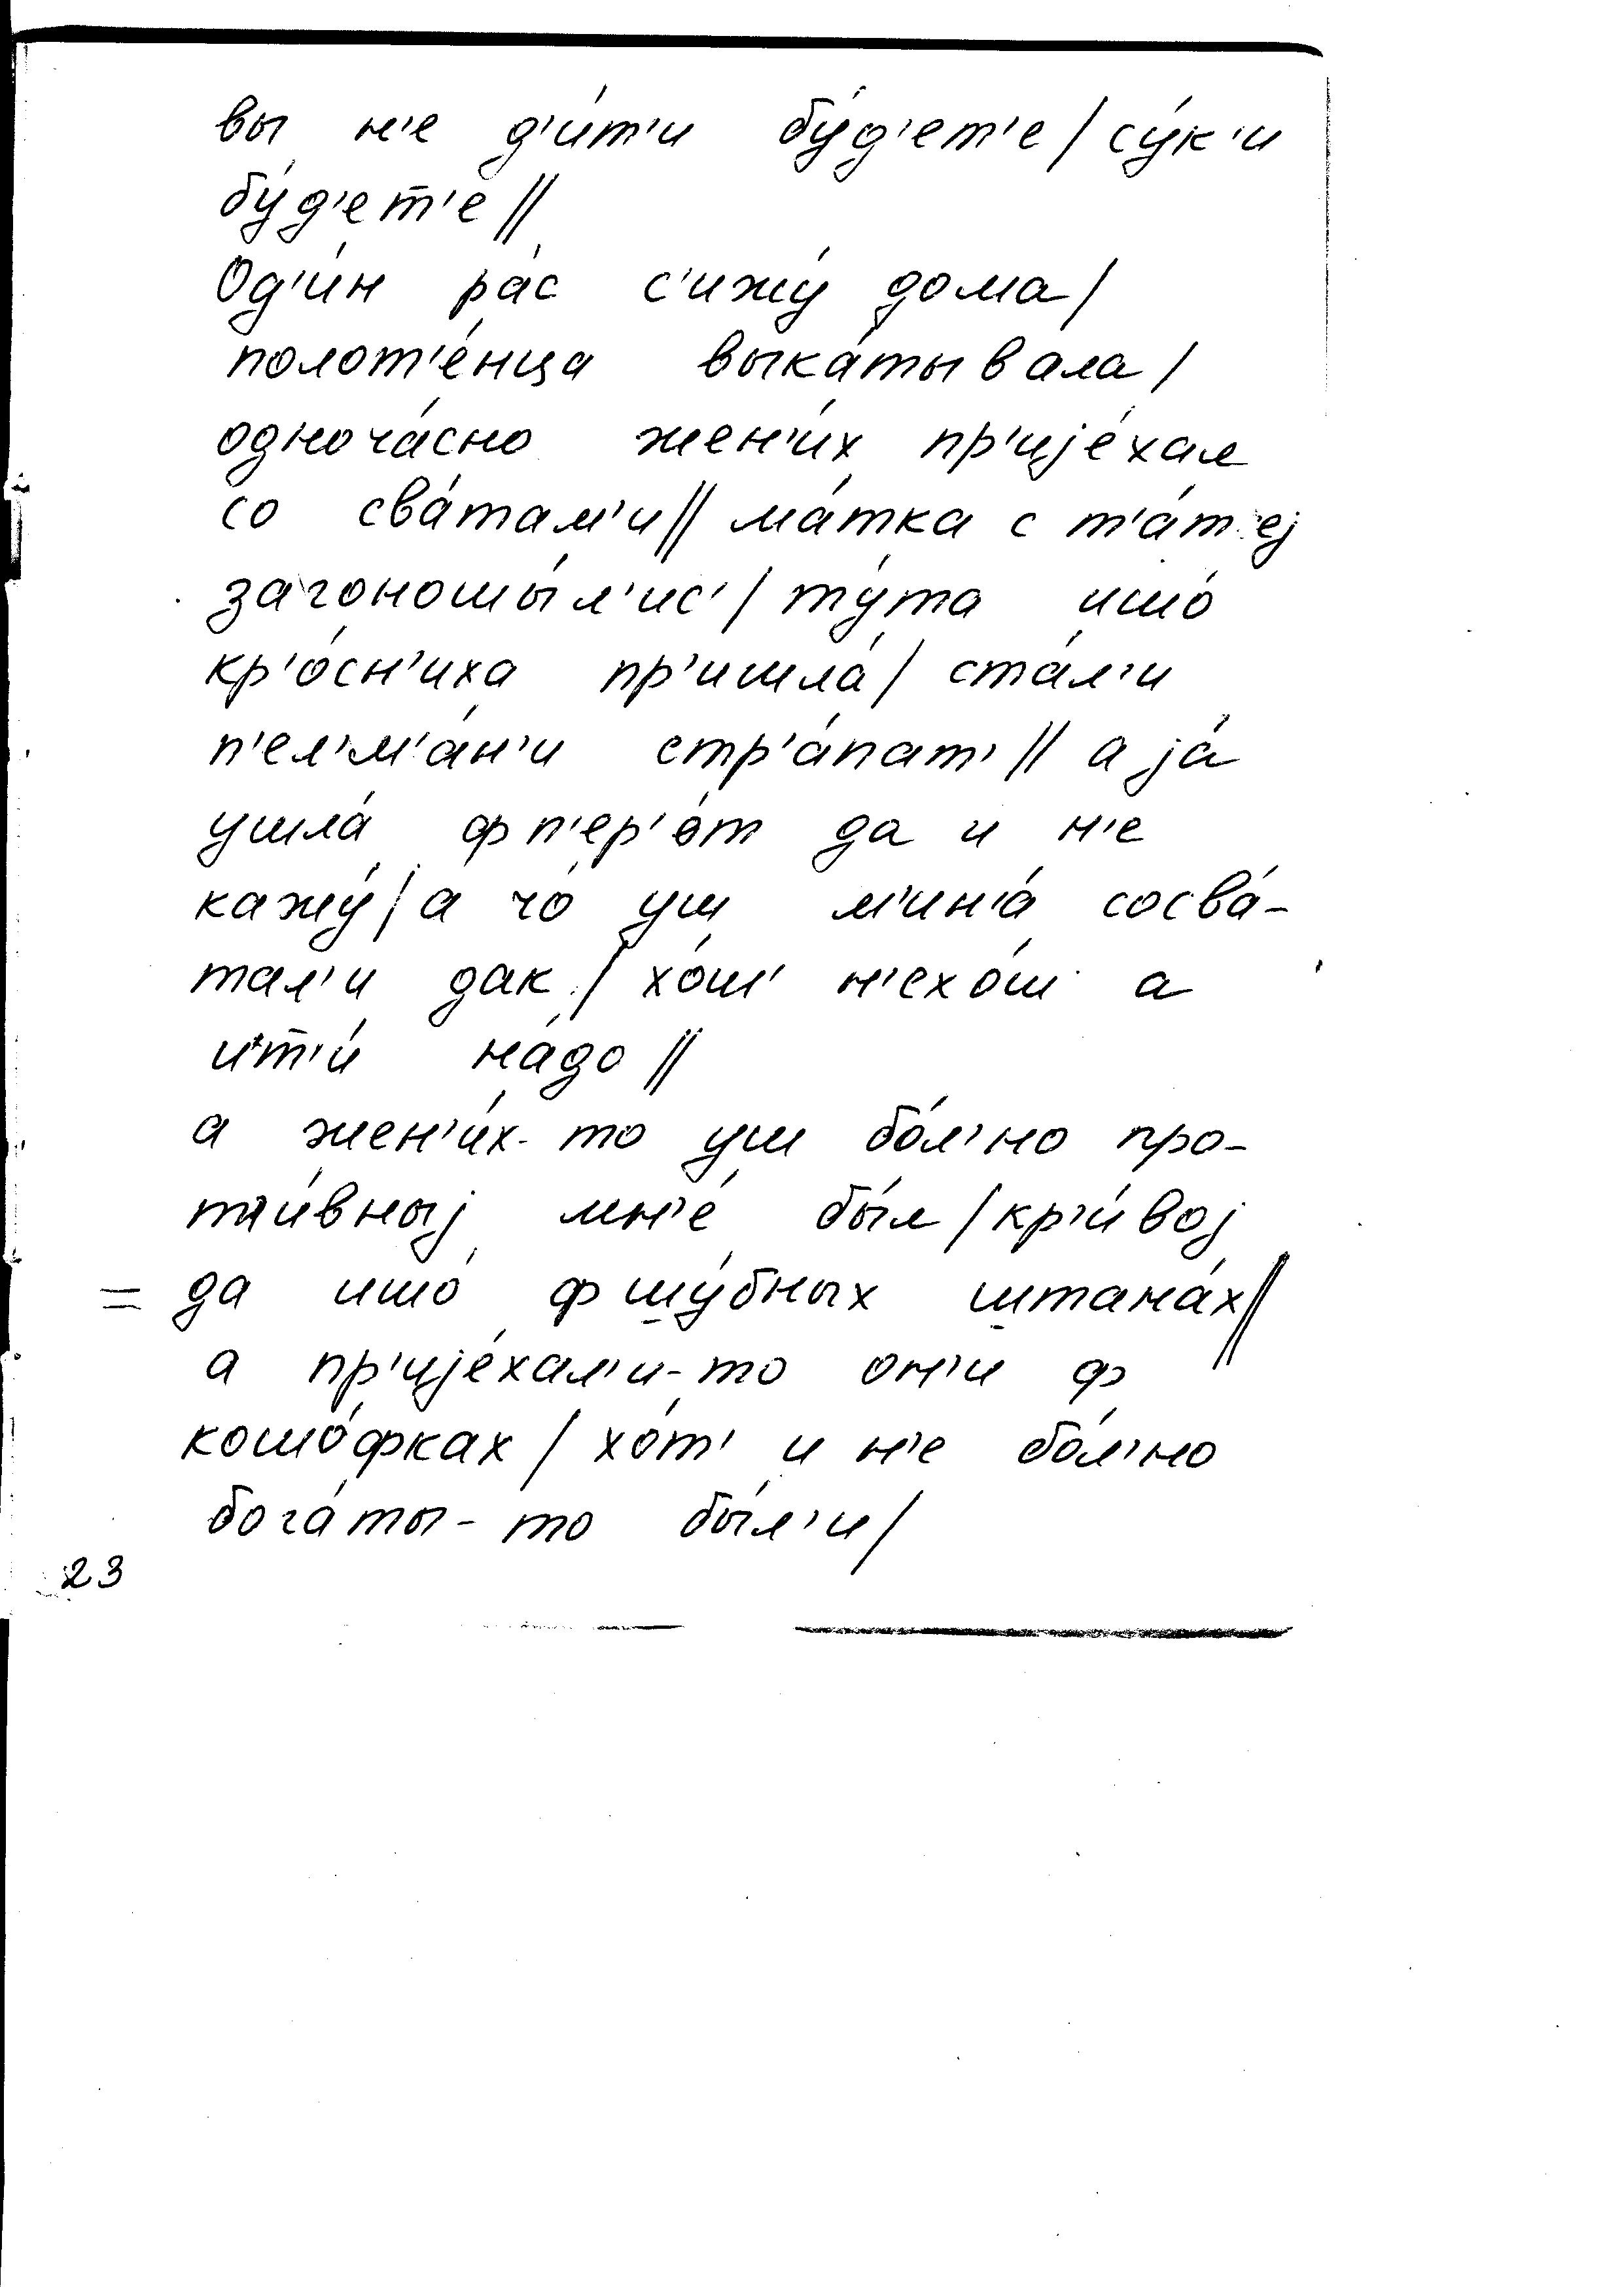 вы н'е д'и́т'и бу́д'ет'е / су́к'и
бу́д'ет'е //
Од'и́н ра́с с'ижу́ дома /
полот'е́нца выка́тывала /
одноча́сно жен'и́х пр'ијéхал
со сва́там'и // ма́тка с т'а́т'еј
загоношы́л'ис' / ту́та ишо́
кр'о́сн'иха пр'ишла́ / ста́л'и
п'ел'м'а́н'и стр'а́пат' // а ја́
ушла́ ф п'ер'о́т да и н'е
кажу́ / а чо́ уш м'ин'а́ сосва́-
тал'и дак / хо́ш' н'ехо́ш а
ит'и́ на́до //
а жен'и́х-то уш бо́л'но про-
т'и́вныј мн'е́ бы́л / кр'и́вој
= да ишо́ ф шу́бных штана́х //
а пр'ијéхал'и-то он'и ф
кошо́фках / хо́т' и н'е бо́л'но
бога́ты-то бы́л'и /
23